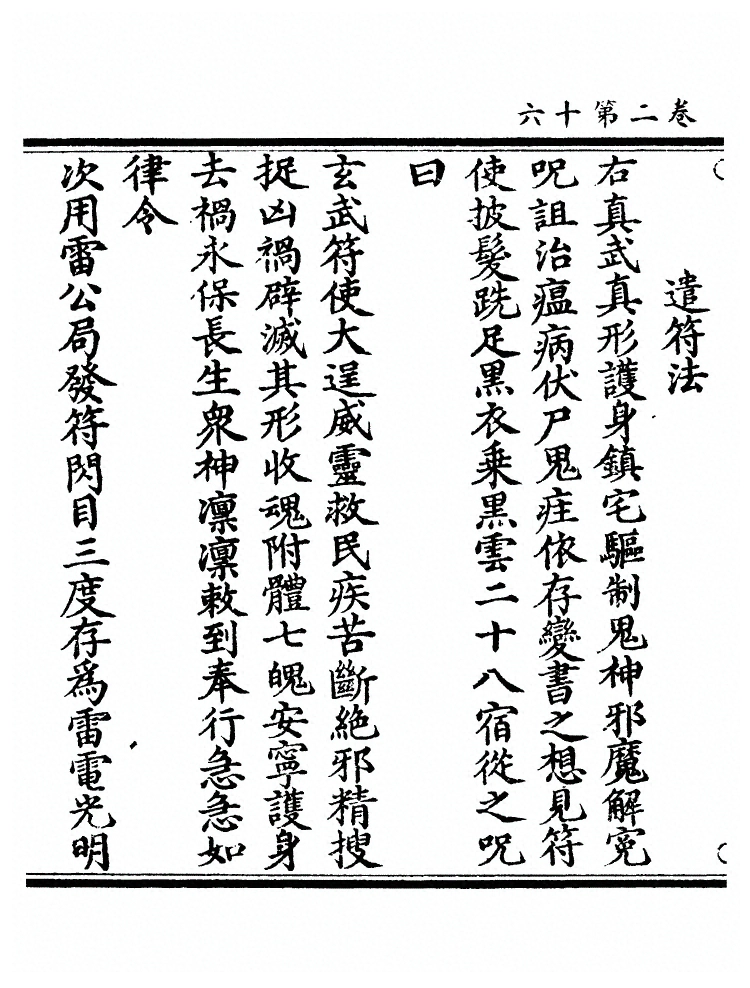 卷二第十六
遣符法
右真武真形護身鎮宅驅制鬼神邪魔解寃
呪詛治瘟病伏尸鬼疰依存變書之想見符
使披髮跣足黑衣乘黑雲二十八宿從之呪
曰
玄武符使大逞威靈救民疾苦斷絶邪精搜
捉凶禍辟滅其形收魂附體七魄安寧護身
去禍永保長生衆神凛凛敕到奉行急急如
律令
次用雷公局發符閃目三度存為雷電光明